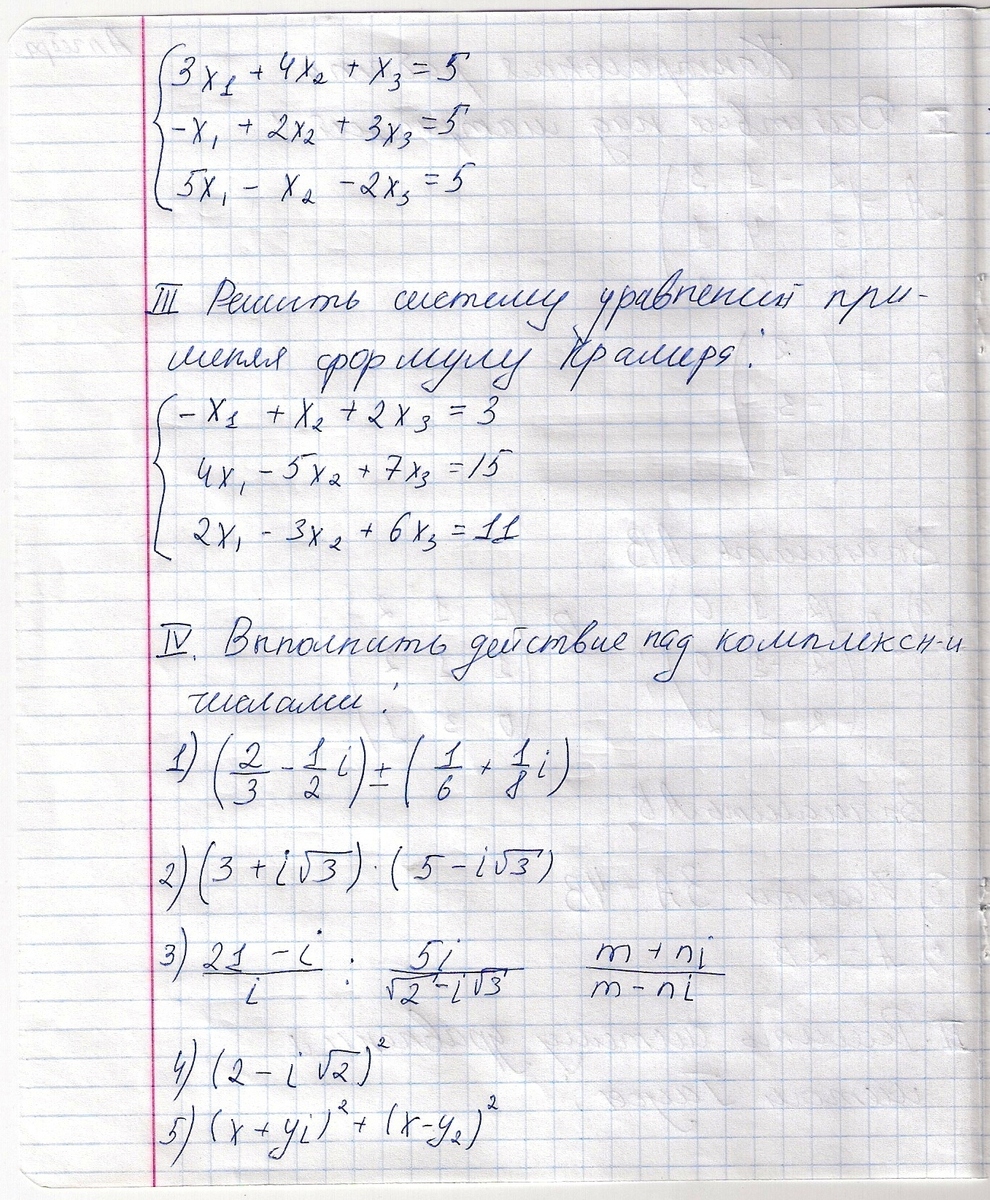 3x₁ + 4x₂ + x₃ = 5
-x₁ + 2x₂ + 3x₃ = 5
5x₁ - x₂ - 2x₃ = 5
III Решить систему уравнений при-
меняя формулу Крамера:
-x₁ + x₂ + 2x₃ = 3
4x₁ - 5x₂ + 7x₃ = 15
2x₁ - 3x₂ + 6x₃ = 11
IV. Выполнить действие над комплексн-и
числами:
1) (2/3 - 1/2 i) ± (1/6 + 1/8 i)
2) (3 + i√3) · (5 - i√3)
3) (21 - i)/i : 5i/(√2 - i√3) (m + ni)/(m - ni)
4) (2 - i√2)²
5) (x + yi)² + (x - y₂)²